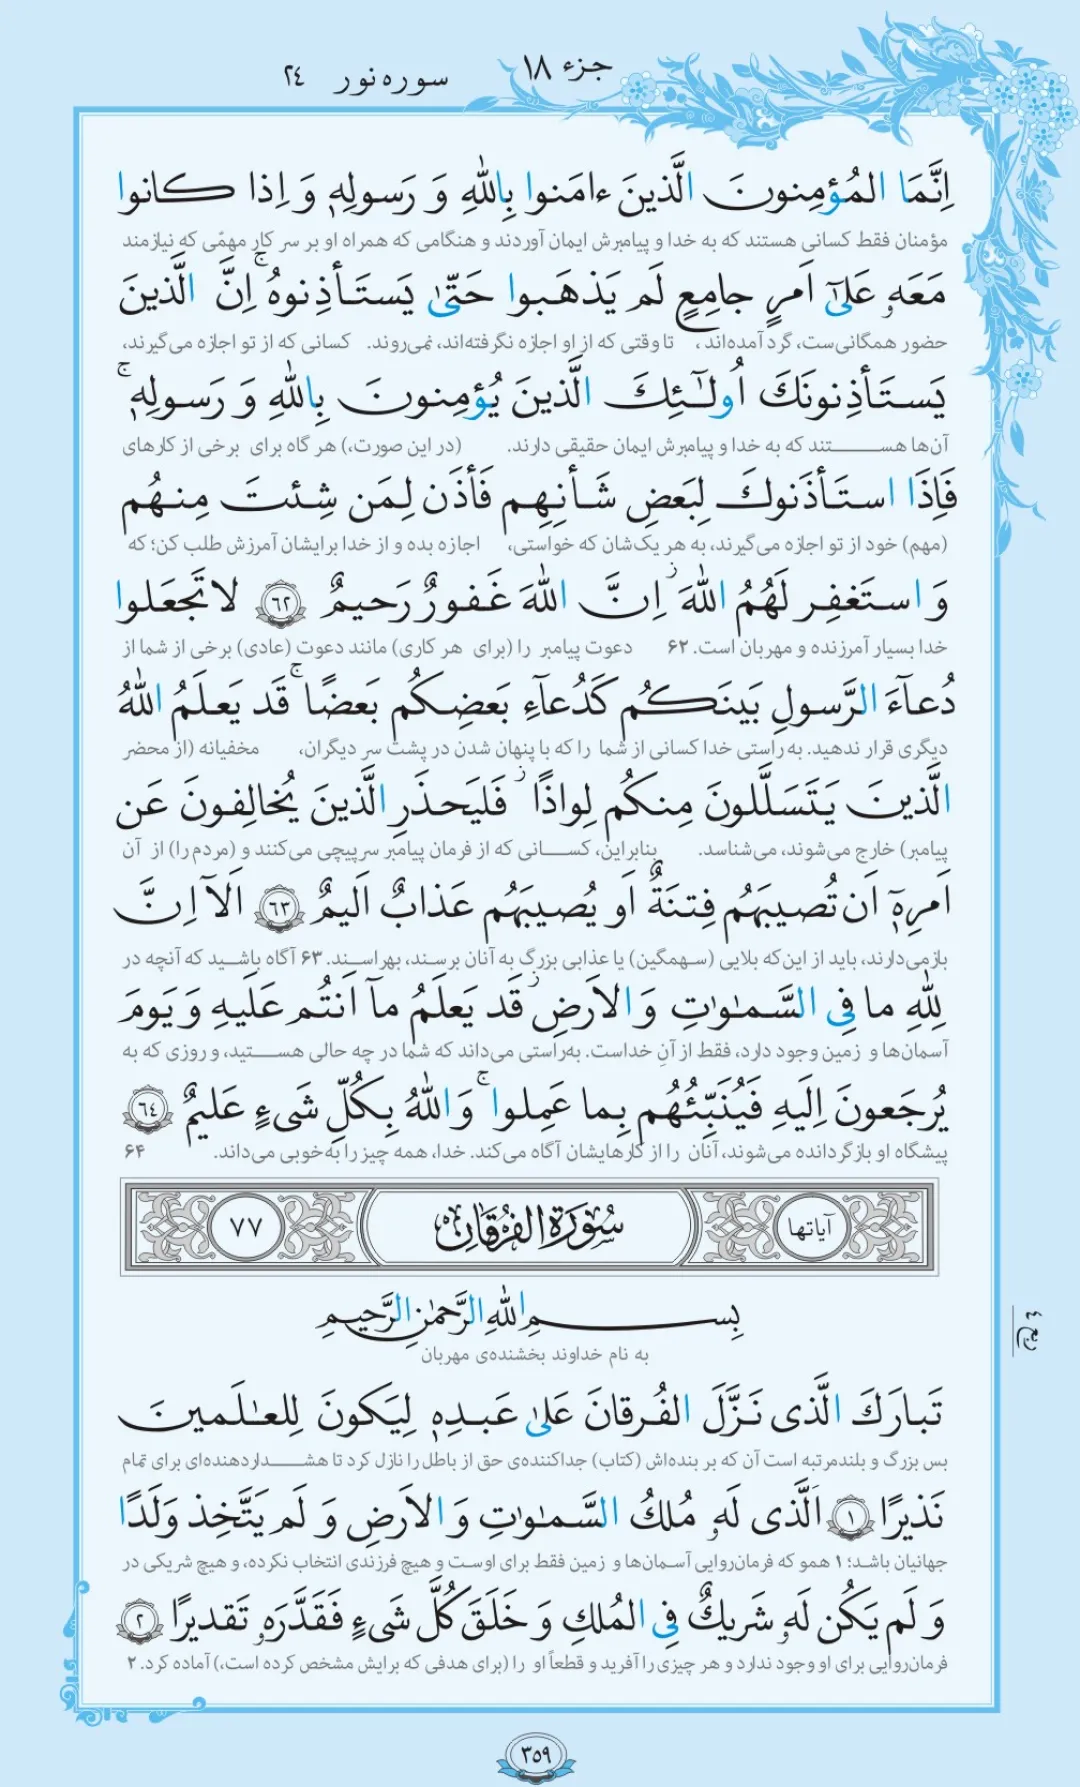 جزء ۱۸
سوره نور ۲۴
اِنَّمَا المُؤمِنونَ الَّذينَ ءامَنوا بِاللّٰهِ وَ رَسولِهٖ وَ اِذا كانوا
مؤمنان فقط کسانی هستند که به خدا و پیامبرش ایمان آوردند و هنگامی که همراه او بر سر کارِ مهمّی که نیازمند
مَعَهٗ عَلىٰٓ اَمرٍ جامِعٍ لَم يَذهَبوا حَتّىٰ يَستَأذِنوهُ ۚ اِنَّ الَّذينَ
حضور همگانی‌ست، گرد آمده‌اند، تا وقتی که از او اجازه نگرفته‌اند، نمی‌روند. کسانی که از تو اجازه می‌گیرند،
يَستَأذِنونَكَ اُولٰٓئِكَ الَّذينَ يُؤمِنونَ بِاللّٰهِ وَ رَسولِهٖ ۚ
آن‌ها هستند که به خدا و پیامبرش ایمان حقیقی دارند. (در این صورت،) هر گاه برای برخی از کارهای
فَاِذَا استَأذَنوكَ لِبَعضِ شَأنِهِم فَأذَن لِمَن شِئتَ مِنهُم
(مهم) خود از تو اجازه می‌گیرند، به هر یک‌شان که خواستی، اجازه بده و از خدا برایشان آمرزش طلب کن؛ که
وَ استَغفِر لَهُمُ اللّٰهَ ۚ اِنَّ اللّٰهَ غَفورٌ رَحيمٌ ﴿٦٢﴾ لا تَجعَلوا
خدا بسیار آمرزنده و مهربان است. ۶۲ دعوت پیامبر را (برای هر کاری) مانند دعوت (عادی) برخی از شما از
دُعآءَ الرَّسولِ بَينَكُم كَدُعآءِ بَعضِكُم بَعضًا ۚ قَد يَعلَمُ اللّٰهُ
دیگری قرار ندهید. به‌راستی خدا کسانی از شما را که با پنهان شدن در پشت سر دیگران، مخفیانه (از محضر
الَّذينَ يَتَسَلَّلونَ مِنكُم لِواذًا ۚ فَليَحذَرِ الَّذينَ يُخالِفونَ عَن
پیامبر) خارج می‌شوند، می‌شناسد. بنابراین، کسانی که از فرمان پیامبر سرپیچی می‌کنند و (مردم را) از آن
اَمرِهٖٓ اَن تُصيبَهُم فِتنَةٌ اَو يُصيبَهُم عَذابٌ اَليمٌ ﴿٦٣﴾ اَلآ اِنَّ
بازمی‌دارند، باید از این‌که بلایی (سهمگین) یا عذابی بزرگ به آنان برسند، بهراسند. ۶۳ آگاه باشید که آنچه در
لِلّٰهِ ما فِي السَّمٰوٰتِ وَ الاَرضِ ۚ قَد يَعلَمُ مآ اَنتُم عَلَيهِ وَ يَومَ
آسمان‌ها و زمین وجود دارد، فقط از آنِ خداست. به‌راستی می‌داند که شما در چه حالی هستید، و روزی که به
يُرجَعونَ اِلَيهِ فَيُنَبِّئُهُم بِما عَمِلوا ۚ وَ اللّٰهُ بِكُلِّ شَىءٍ عَليمٌ ﴿٦٤﴾
پیشگاه او بازگردانده می‌شوند، آنان را از کارهایشان آگاه می‌کند. خدا، همه چیز را به‌خوبی می‌داند. ۶۴
آیاتها سُورَةُ الفُرقَانِ ۷۷
بِسمِ اللّٰهِ الرَّحمٰنِ الرَّحيمِ
به نام خداوند بخشنده‌ی مهربان
ربع ٤
تَبارَكَ الَّذى نَزَّلَ الفُرقانَ عَلىٰ عَبدِهٖ لِيَكونَ لِلعٰلَمينَ
بس بزرگ و بلندمرتبه است آن که بر بنده‌اش (کتاب) جداکننده‌ی حق از باطل را نازل کرد تا هشداردهنده‌ای برای تمام
نَذيرًا ﴿١﴾ اَلَّذى لَهٗ مُلكُ السَّمٰوٰتِ وَ الاَرضِ وَ لَم يَتَّخِذ وَلَدًا
جهانیان باشد؛ ۱ همو که فرمان‌روایی آسمان‌ها و زمین فقط برای اوست و هیچ فرزندی انتخاب نکرده، و هیچ شریکی در
وَ لَم يَكُن لَهٗ شَريكٌ فِي المُلكِ وَ خَلَقَ كُلَّ شَىءٍ فَقَدَّرَهٗ تَقديرًا ﴿٢﴾
فرمان‌روایی برای او وجود ندارد و هر چیزی را آفرید و قطعاً او را (برای هدفی که برایش مشخص کرده است،) آماده کرد. ۲
۳۵۹